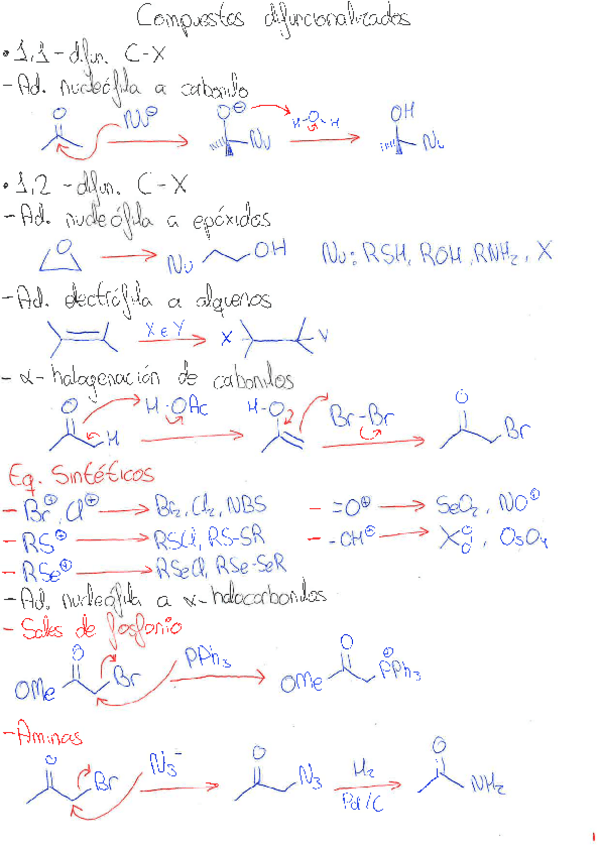 Compuestos difuncionalizados
• 1,1 - difun. C-X
- Ad. nucleófila a carbonilo
O Nu⊖ O⊖ Nu H-O-H OH Nu
• 1,2 - difun. C-X
- Ad. nucleófila a epóxidos
O Nu OH Nu: RSH, ROH, RNH₂, X
- Ad. electrófila a alquenos
X e Y X Y
- α-halogenación de carbonilos
O H H-OAc H-O Br-Br O Br
Eq. Sintéticos
- Br⊕, Cl⊕ → Br₂, Cl₂, NBS - =O⊕ → SeO₂, NO⊕
- RS⊕ → RSCl, RS-SR - -OH⊕ → OsO₄
- RSe⊕ → RSeCl, RSe-SeR
- Ad. nucleófila a α-halocarbonilos
- Sales de fosfonio
OMe O Br PPh₃ OMe O ⊕PPh₃
- Aminas
O Br N₃⁻ O N₃ H₂ Pd/C O NH₂
1